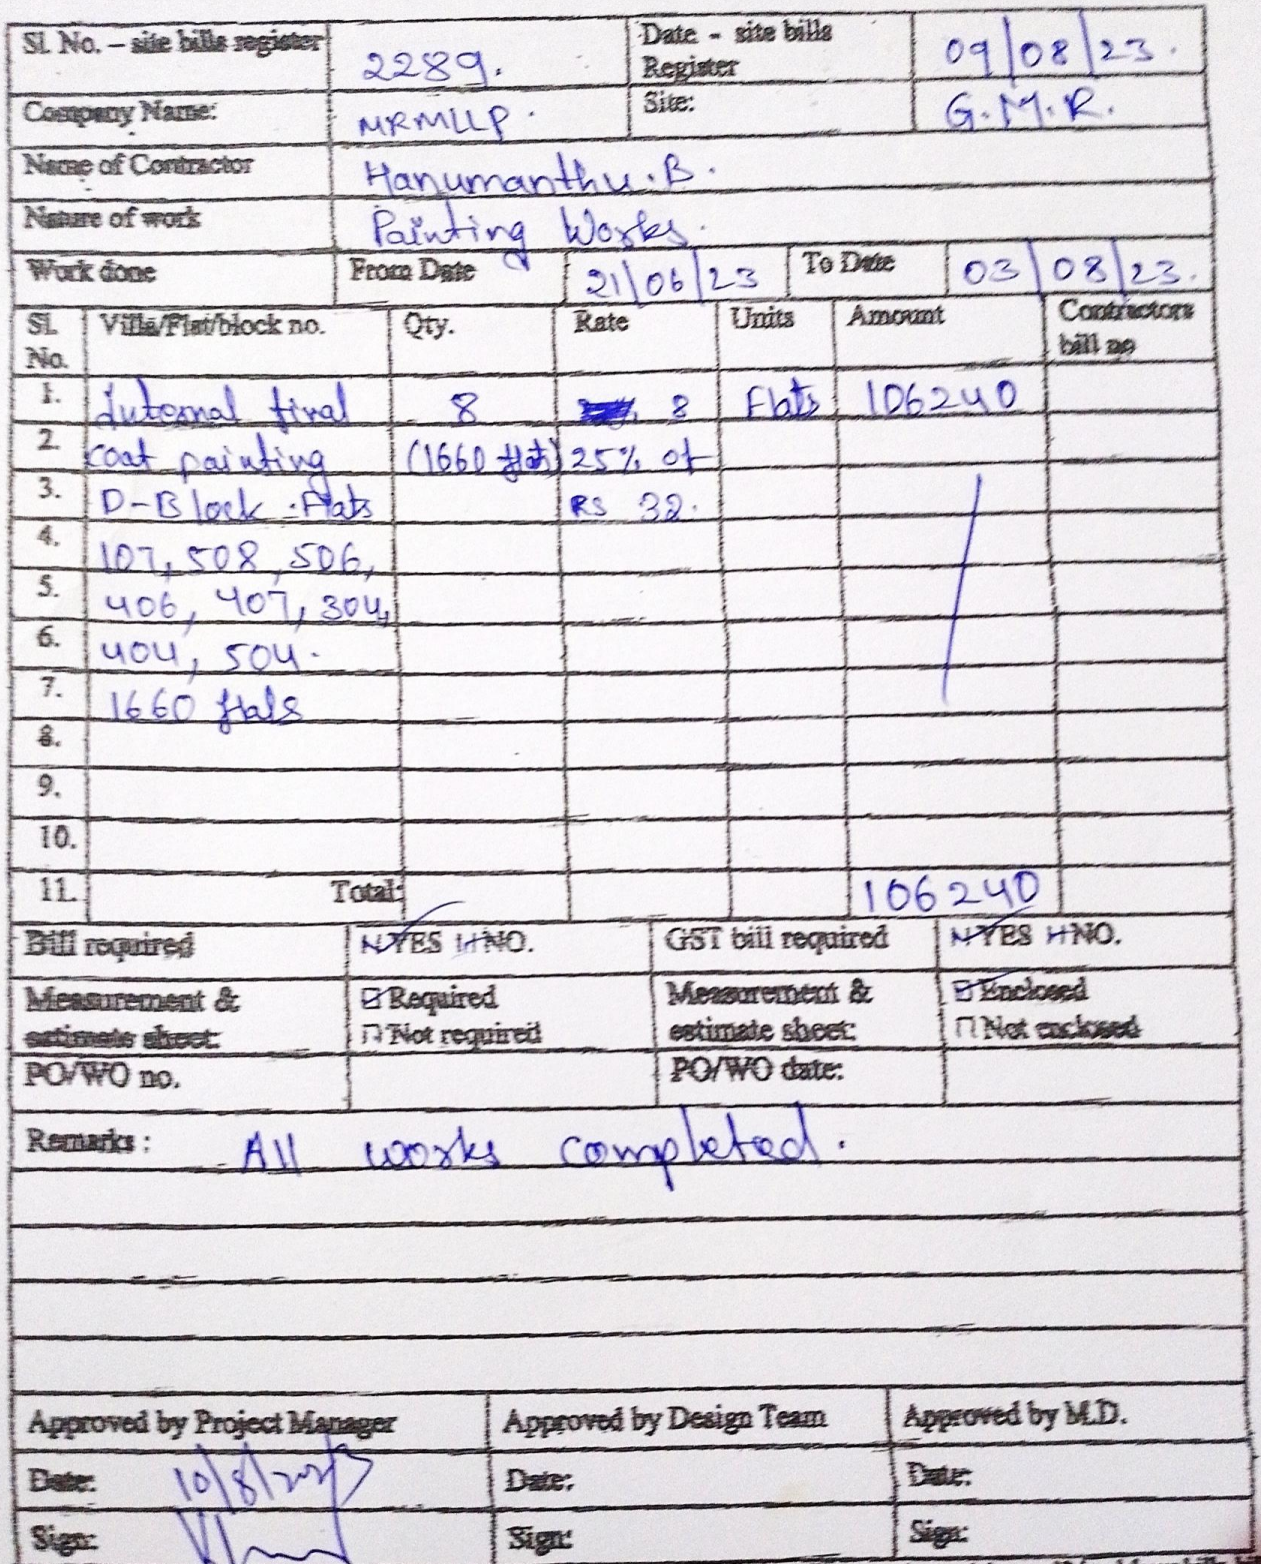 Sl. No. – site bills register 2289. Date - site bills Register 09/08/23.
Company Name: MRMLLP. Site: G.M.R.
Name of Contractor Hanumanthu.B.
Nature of work Painting Works.
Work done From Date 21/06/23 To Date 03/08/23.
Sl. No. Villa/Flat/block no. Qty. Rate Units Amount Contractors bill no
1. Internal final 8 8 Flats 106240
2. coat painting (1660 flat) 25% of
3. D-Block Flats RS 32.
4. 107, 508, 506,
5. 406, 407, 304,
6. 404, 504.
7. 1660 flats
8.
9.
10.
11. Total: 106240
Bill required YES NO. GST bill required YES NO.
Measurement & estimate sheet: Required Measurement & estimate sheet: Enclosed
Not required Not enclosed
PO/WO no. PO/WO date:
Remarks : All works completed.
Approved by Project Manager Approved by Design Team Approved by M.D.
Date: 10/8/2023 Date: Date:
Sign: Sign: Sign: